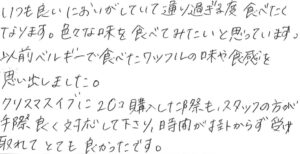 いつも良いにおいがしていて通り過ぎる度食べたく
なります。色々な味を食べてみたいと思っています。
以前ベルギーで食べたワッフルの味や食感を
思い出しました。
クリスマスイブに20コ購入した際も、スタッフの方が
手際良く対応して下さり、時間が掛からず受け
取れてとても良かったです。